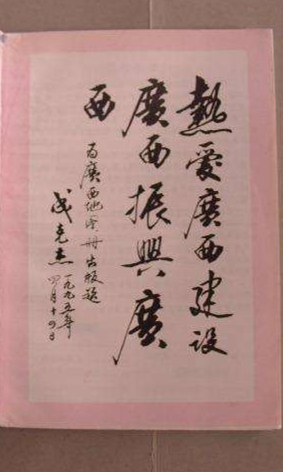 熱爱廣西建设
廣西振興廣
西
为廣西地图册出版题
成克杰
一九九五年
四月十四日